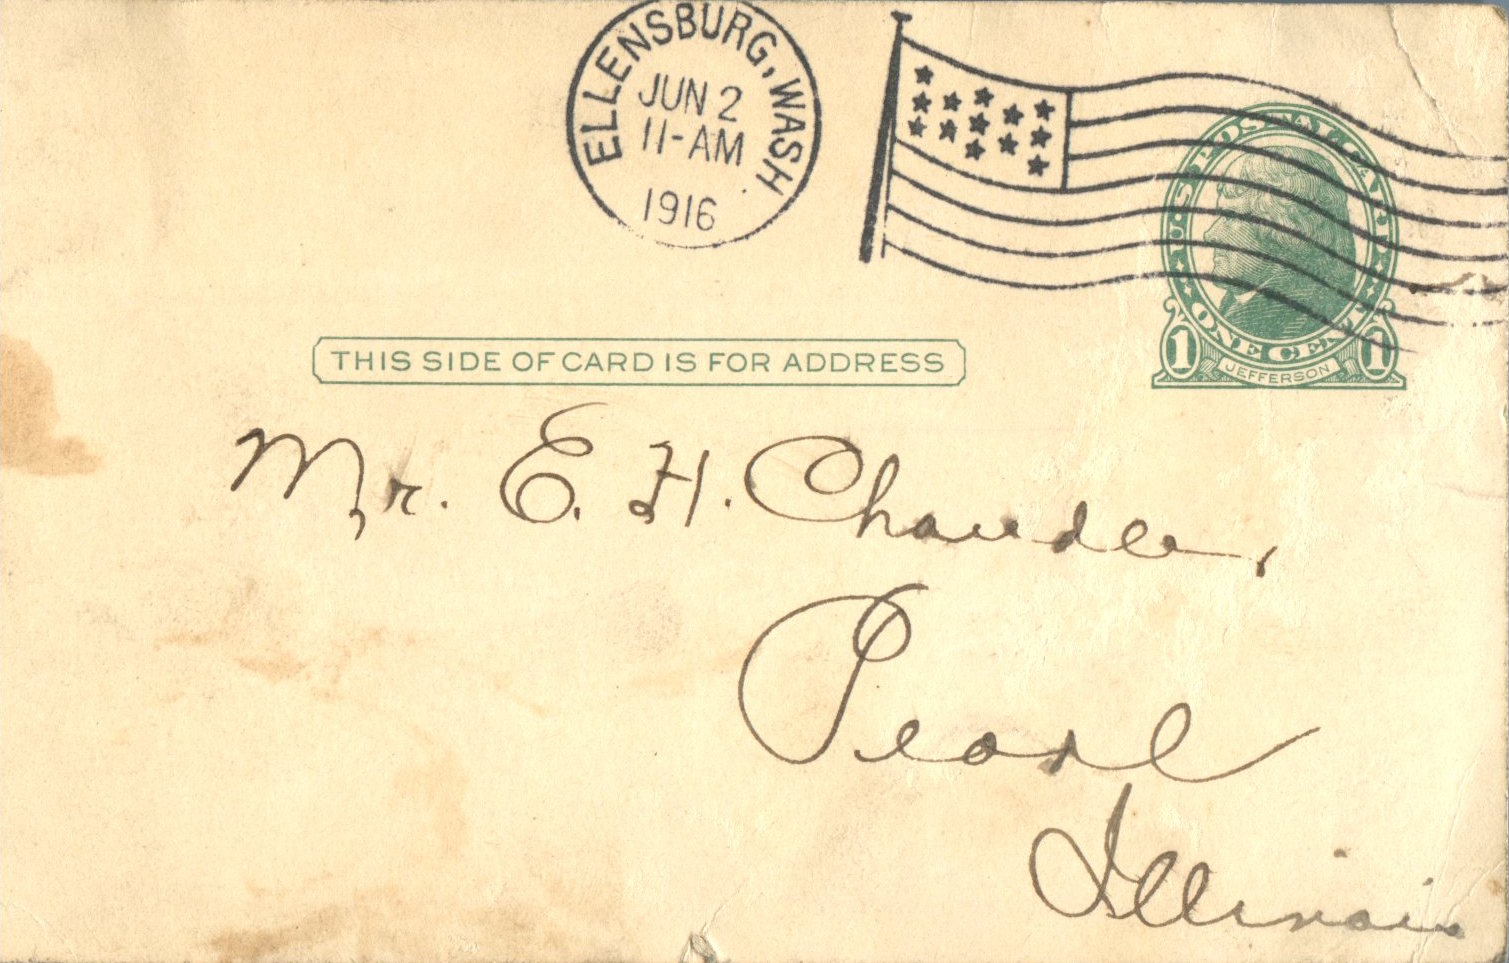 ELLENSBURG, WASH
JUN 2
11-AM
1916
U.S. POSTAL CARD
ONE CENT
1 1
JEFFERSON
THIS SIDE OF CARD IS FOR ADDRESS
Mr. E. H. Chandler,
Pearl
Illinois